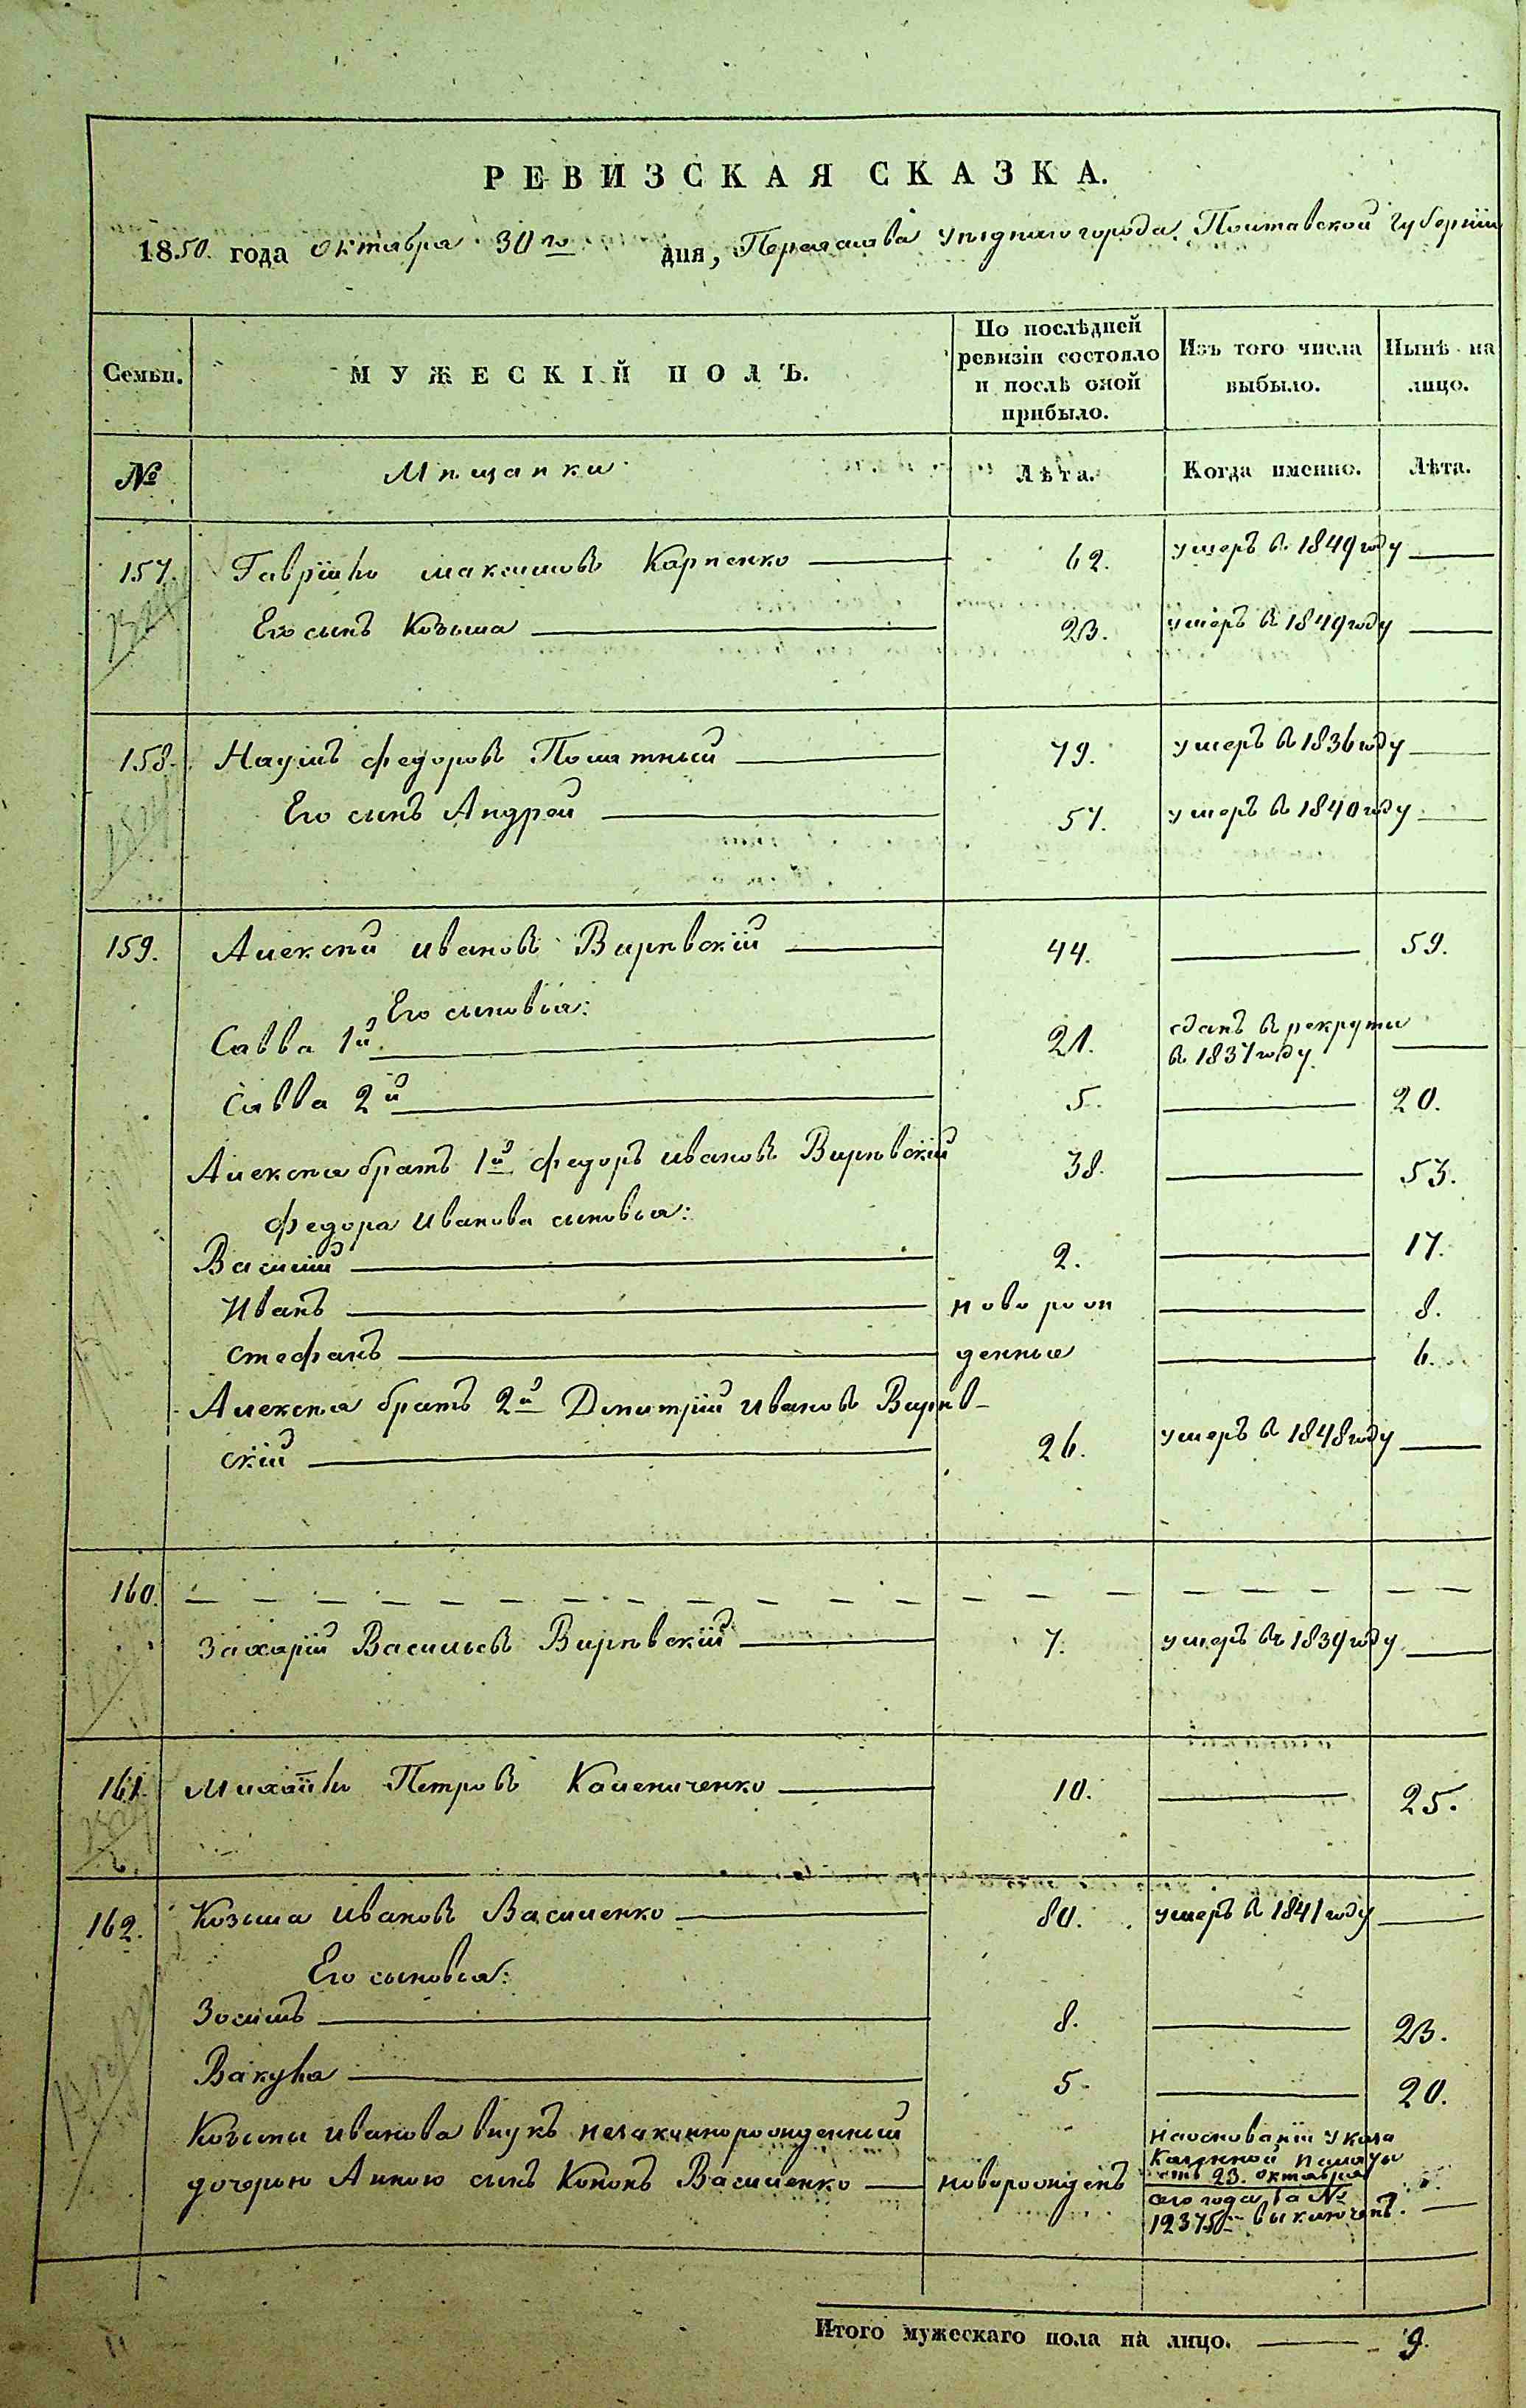 РЕВИЗСКАЯ СКАЗКА.
1850. года Октября 30го дня, Переяслава уѣзднаго города Полтавской Губерніи
Семьи. МУЖЕСКІЙ ПОЛЪ. По послѣдней ревизіи состояло и послѣ оной прибыло. Изъ того числа выбыло. Нынѣ на лицо.
№ Мѣщанки Лѣта. Когда именно. Лѣта.
157. Гаврійло Максимовъ Карпенко 62. умеръ в 1849 году
Его сынъ Козьма 23. умеръ в 1849 году
158. Наумъ Федоровъ Поматный 79. умеръ в 1836 году
Его сынъ Андрей 57. умеръ в 1840 году
159. Алексѣй Ивановъ Вирѣвскій 44. 59.
Его сыновья:
Савва 1й 21. сданъ в рекруты в 1837 году.
Савва 2й 5. 20.
Алексѣя братъ 1й Федоръ Ивановъ Вирѣвскій 38. 53.
Федора Иванова сыновья:
Василій 2. 17.
Иванъ новорож 8.
Стефанъ денные 6.
Алексѣя братъ 2й Дмитрій Ивановъ Вирѣв-
скій 26. умеръ в 1848 году
160.
Захарій Васильевъ Вирѣвскій 7. умеръ в 1839 году
161. Михайло Петровъ Калениченко 10. 25.
162. Козьма Ивановъ Василенко 80. умеръ в 1841 году
Его сыновья:
Зосимъ 8. 23.
Вакула 5. 20.
Козьмы Иванова внукъ незаконнорожденный
дочерью Анною сынъ Кононъ Василенко новорожденъ На основаніи указа Казенной Палаты отъ 23. Октября сего года за № 12375м выключенъ.
Итого мужескаго пола на лицо. 9.